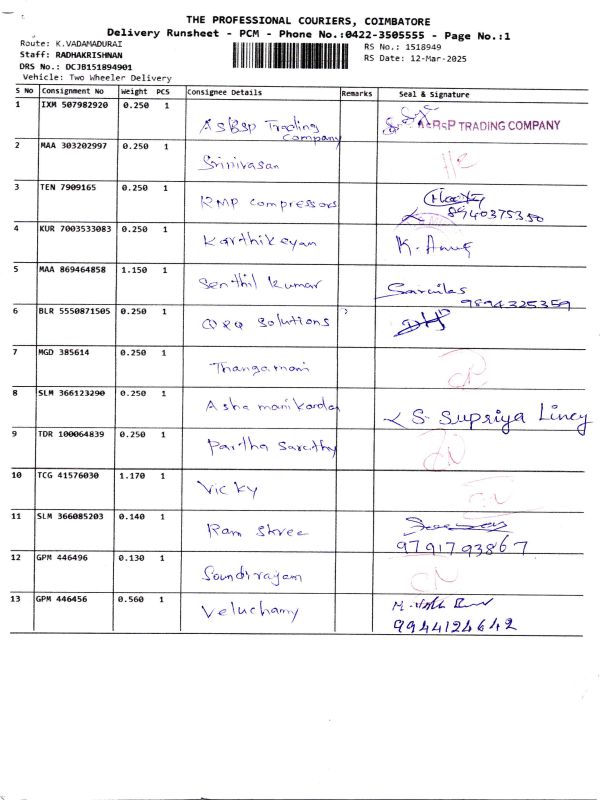 THE PROFESSIONAL COURIERS, COIMBATORE
Delivery Runsheet - PCM - Phone No.:0422-3505555 - Page No.:1
Route: K.VADAMADURAI
RS No.: 1518949
Staff: RADHAKRISHNAN
RS Date: 12-Mar-2025
DRS No.: DCJB151894901
Vehicle: Two Wheeler Delivery
S No Consignment No Weight PCS Consignee Details Remarks Seal & Signature
1 IXM 507982920 0.250 1
ASBSP Trading Company
A&RSP TRADING COMPANY
2 MAA 303202997 0.250 1
Srinivasan
3 TEN 7909165 0.250 1
RMP Compressors
8940375350
4 KUR 7003533083 0.250 1
Karthikeyan K. Anuj
5 MAA 869464858 1.150 1
Senthil Kumar
9894325359
6 BLR 5550871505 0.250 1
Solutions
7 MGD 385614 0.250 1
Thangamani
8 SLM 366123290 0.250 1
Asha manikandan S. Supriya Lincy
9 TDR 100064839 0.250 1
Partha Sarathy
10 TCG 41576030 1.170 1
Vicky
11 SLM 366085203 0.140 1
Ram Shree
9791793867
12 GPM 446496 0.130 1
Soundirayam CN
13 GPM 446456 0.560 1
Veluchamy
9944124642